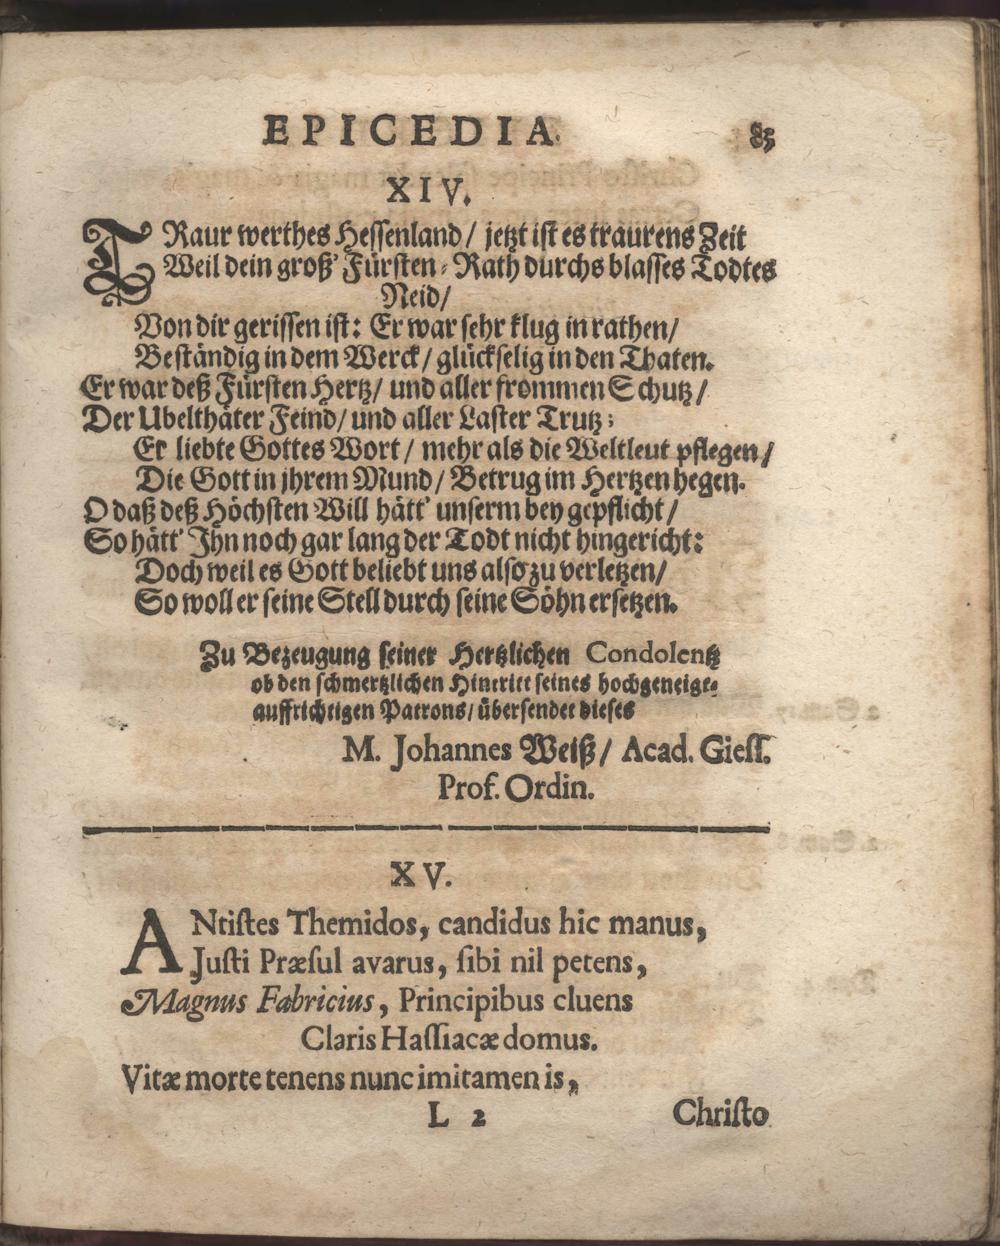 EPICEDIA. 83
XIV.
TRaur werthes Hessenland/ jetzt ist es traurens Zeit
Weil dein groß' Fürsten-Rath durchs blasses Todtes
Neid/
Von dir gerissen ist: Er war sehr klug in rathen/
Beständig in dem Werck/ glückselig in den Thaten.
Er war deß Fürsten Hertz/ und aller frommen Schutz/
Der Ubelthäter Feind/ und aller Laster Trutz;
Er liebte Gottes Wort/ mehr als die Weltleut pflegen/
Die Gott in jhrem Mund/ Betrug im Hertzen hegen.
O daß deß Höchsten Will hätt' unserm bey gepflicht/
So hätt' Jhn noch gar lang der Todt nicht hingericht:
Doch weil es Gott beliebt uns also zu verletzen/
So woll er seine Stell durch seine Söhn ersetzen.
Zu Bezeugung seiner Hertzlichen Condolentz
ob den schmertzlichen Hintritt seines hochgeneigt-
auffrichtigen Patrons/ übersendet dieses
M. Johannes Weiß/ Acad. Giess.
Prof. Ordin.
XV.
ANtistes Themidos, candidus hic manus,
Justi Præsul avarus, sibi nil petens,
Magnus Fabricius, Principibus cluens
Claris Hassiacæ domus.
Vitæ morte tenens nunc imitamen is,
L 2 Christo